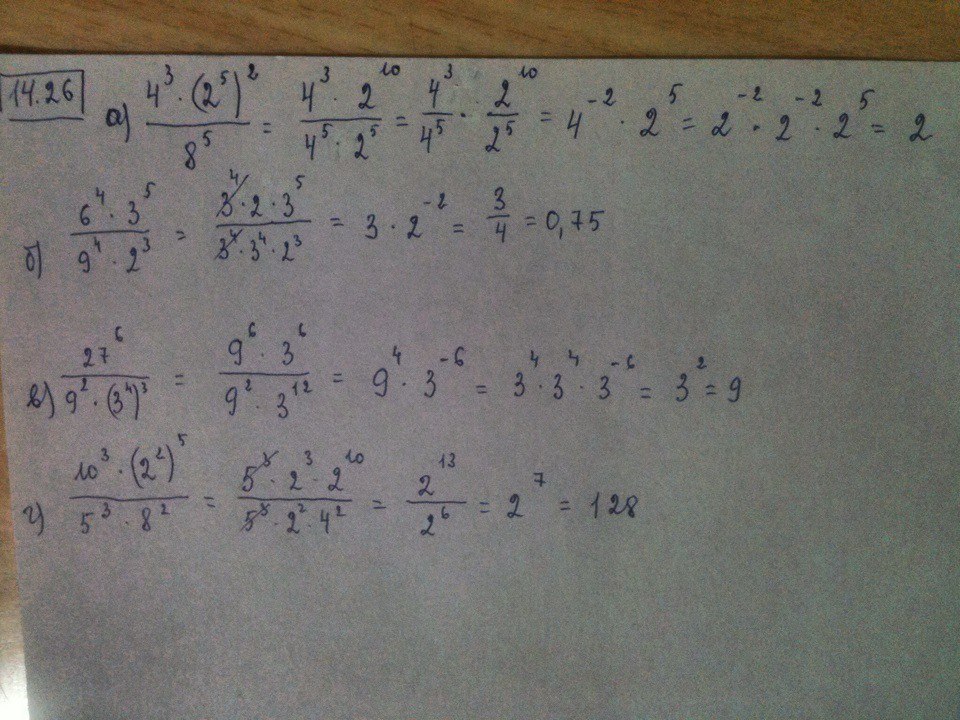 14.26 а) 4³ · (2⁵)² / 8⁵ = 4³ · 2¹⁰ / 4⁵ · 2⁵ = 4³ / 4⁵ · 2¹⁰ / 2⁵ = 4⁻² · 2⁵ = 2⁻² · 2⁻² · 2⁵ = 2
б) 6⁴ · 3⁵ / 9⁴ · 2³ = 3⁴ · 2 · 3⁵ / 3⁴ · 3⁴ · 2³ = 3 · 2⁻² = 3 / 4 = 0,75
в) 27⁶ / 9² · (3⁴)³ = 9⁶ · 3⁶ / 9² · 3¹² = 9⁴ · 3⁻⁶ = 3⁴ · 3⁴ · 3⁻⁶ = 3² = 9
г) 10³ · (2²)⁵ / 5³ · 8² = 5³ · 2³ · 2¹⁰ / 5³ · 2² · 4² = 2¹³ / 2⁶ = 2⁷ = 128